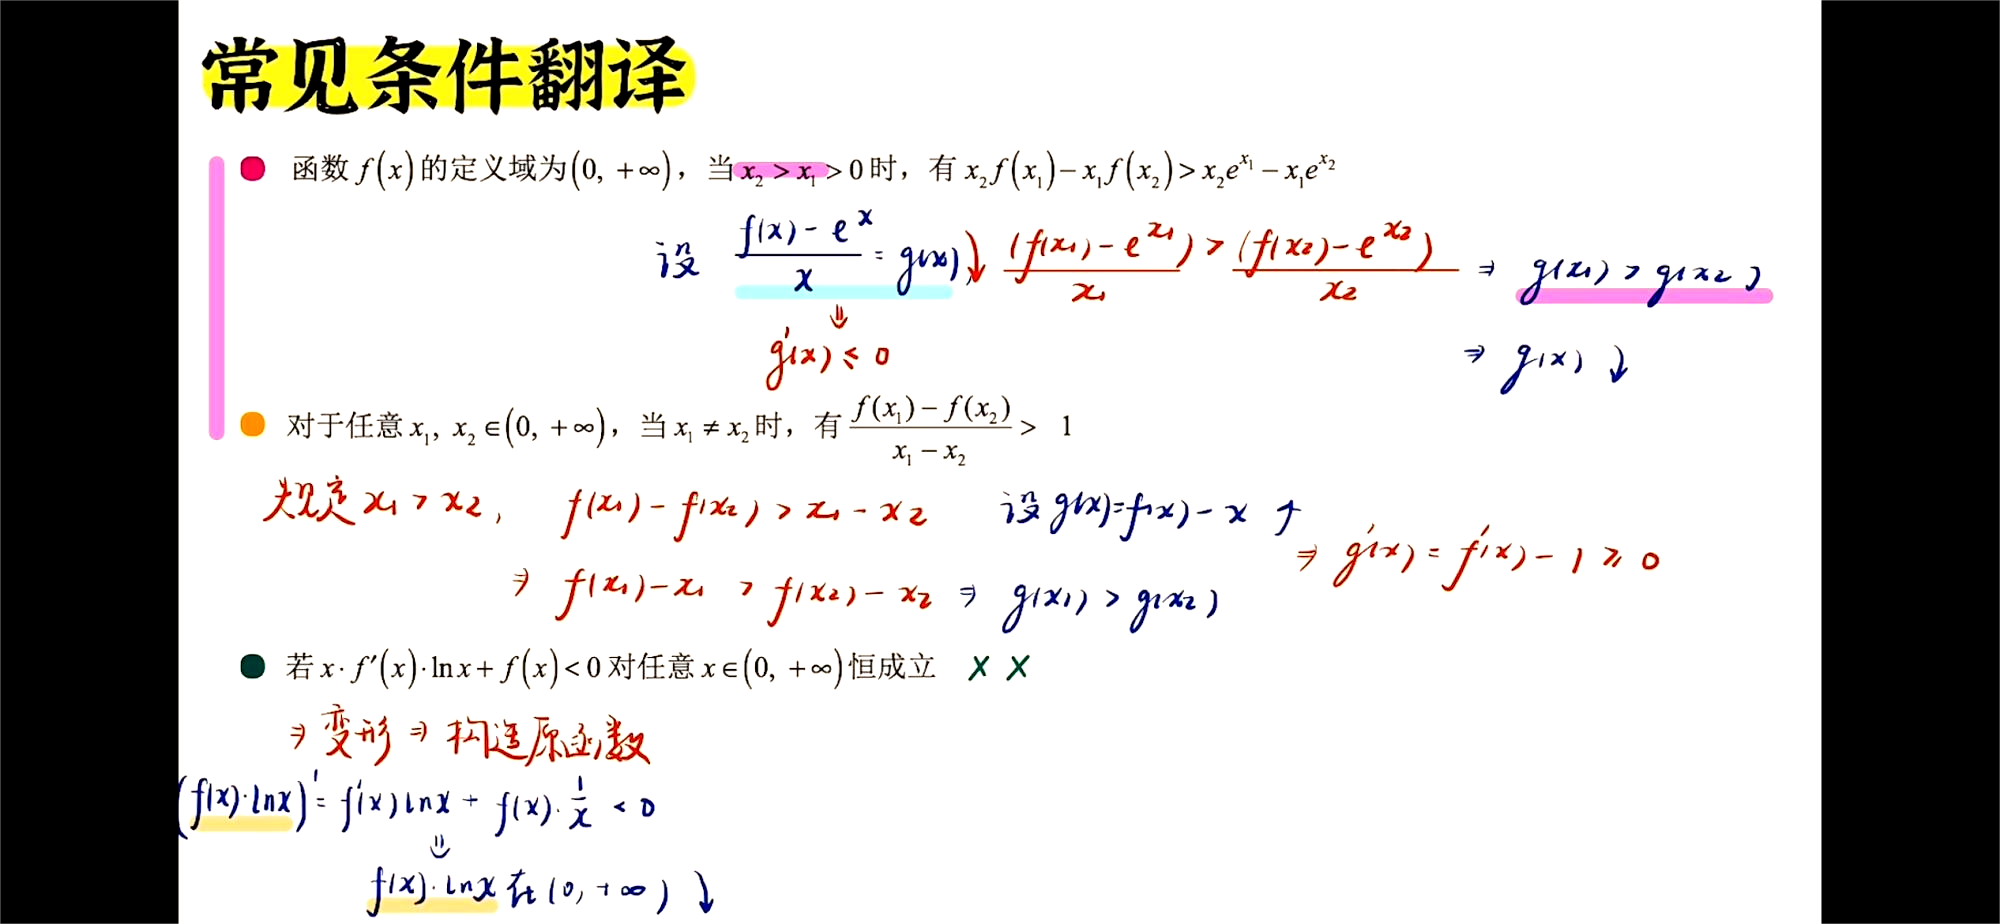 常见条件翻译
函数 f(x) 的定义域为(0, +∞)，当 x₂ > x₁ > 0 时，有 x₂f(x₁)−x₁f(x₂)>x₂e^{x₁}−x₁e^{x₂}
设 \frac{f(x)-e^x}{x} = g(x)↓ \frac{(f(x₁)-e^{x₁})}{x₁} > \frac{(f(x₂)-e^{x₂})}{x₂} ⇒ g(x₁) > g(x₂)
⇓
g'(x) ≤ 0 ⇒ g(x) ↓
对于任意 x₁, x₂ ∈(0, +∞)，当 x₁ ≠ x₂ 时，有 \frac{f(x₁)−f(x₂)}{x₁−x₂} > 1
规定 x₁ > x₂, f(x₁)−f(x₂) > x₁−x₂ 设 g(x)=f(x)−x ↑
⇒ g'(x) = f'(x)−1 ≥ 0
⇒ f(x₁)−x₁ > f(x₂)−x₂ ⇒ g(x₁) > g(x₂)
若 x·f′(x)·ln x + f(x) < 0 对任意 x∈(0, +∞) 恒成立 × ×
⇒ 变形 ⇒ 构造原函数
(f(x)·lnx)' = f'(x)lnx + f(x)·\frac{1}{x} < 0
⇓
f(x)·lnx 在(0, +∞) ↓